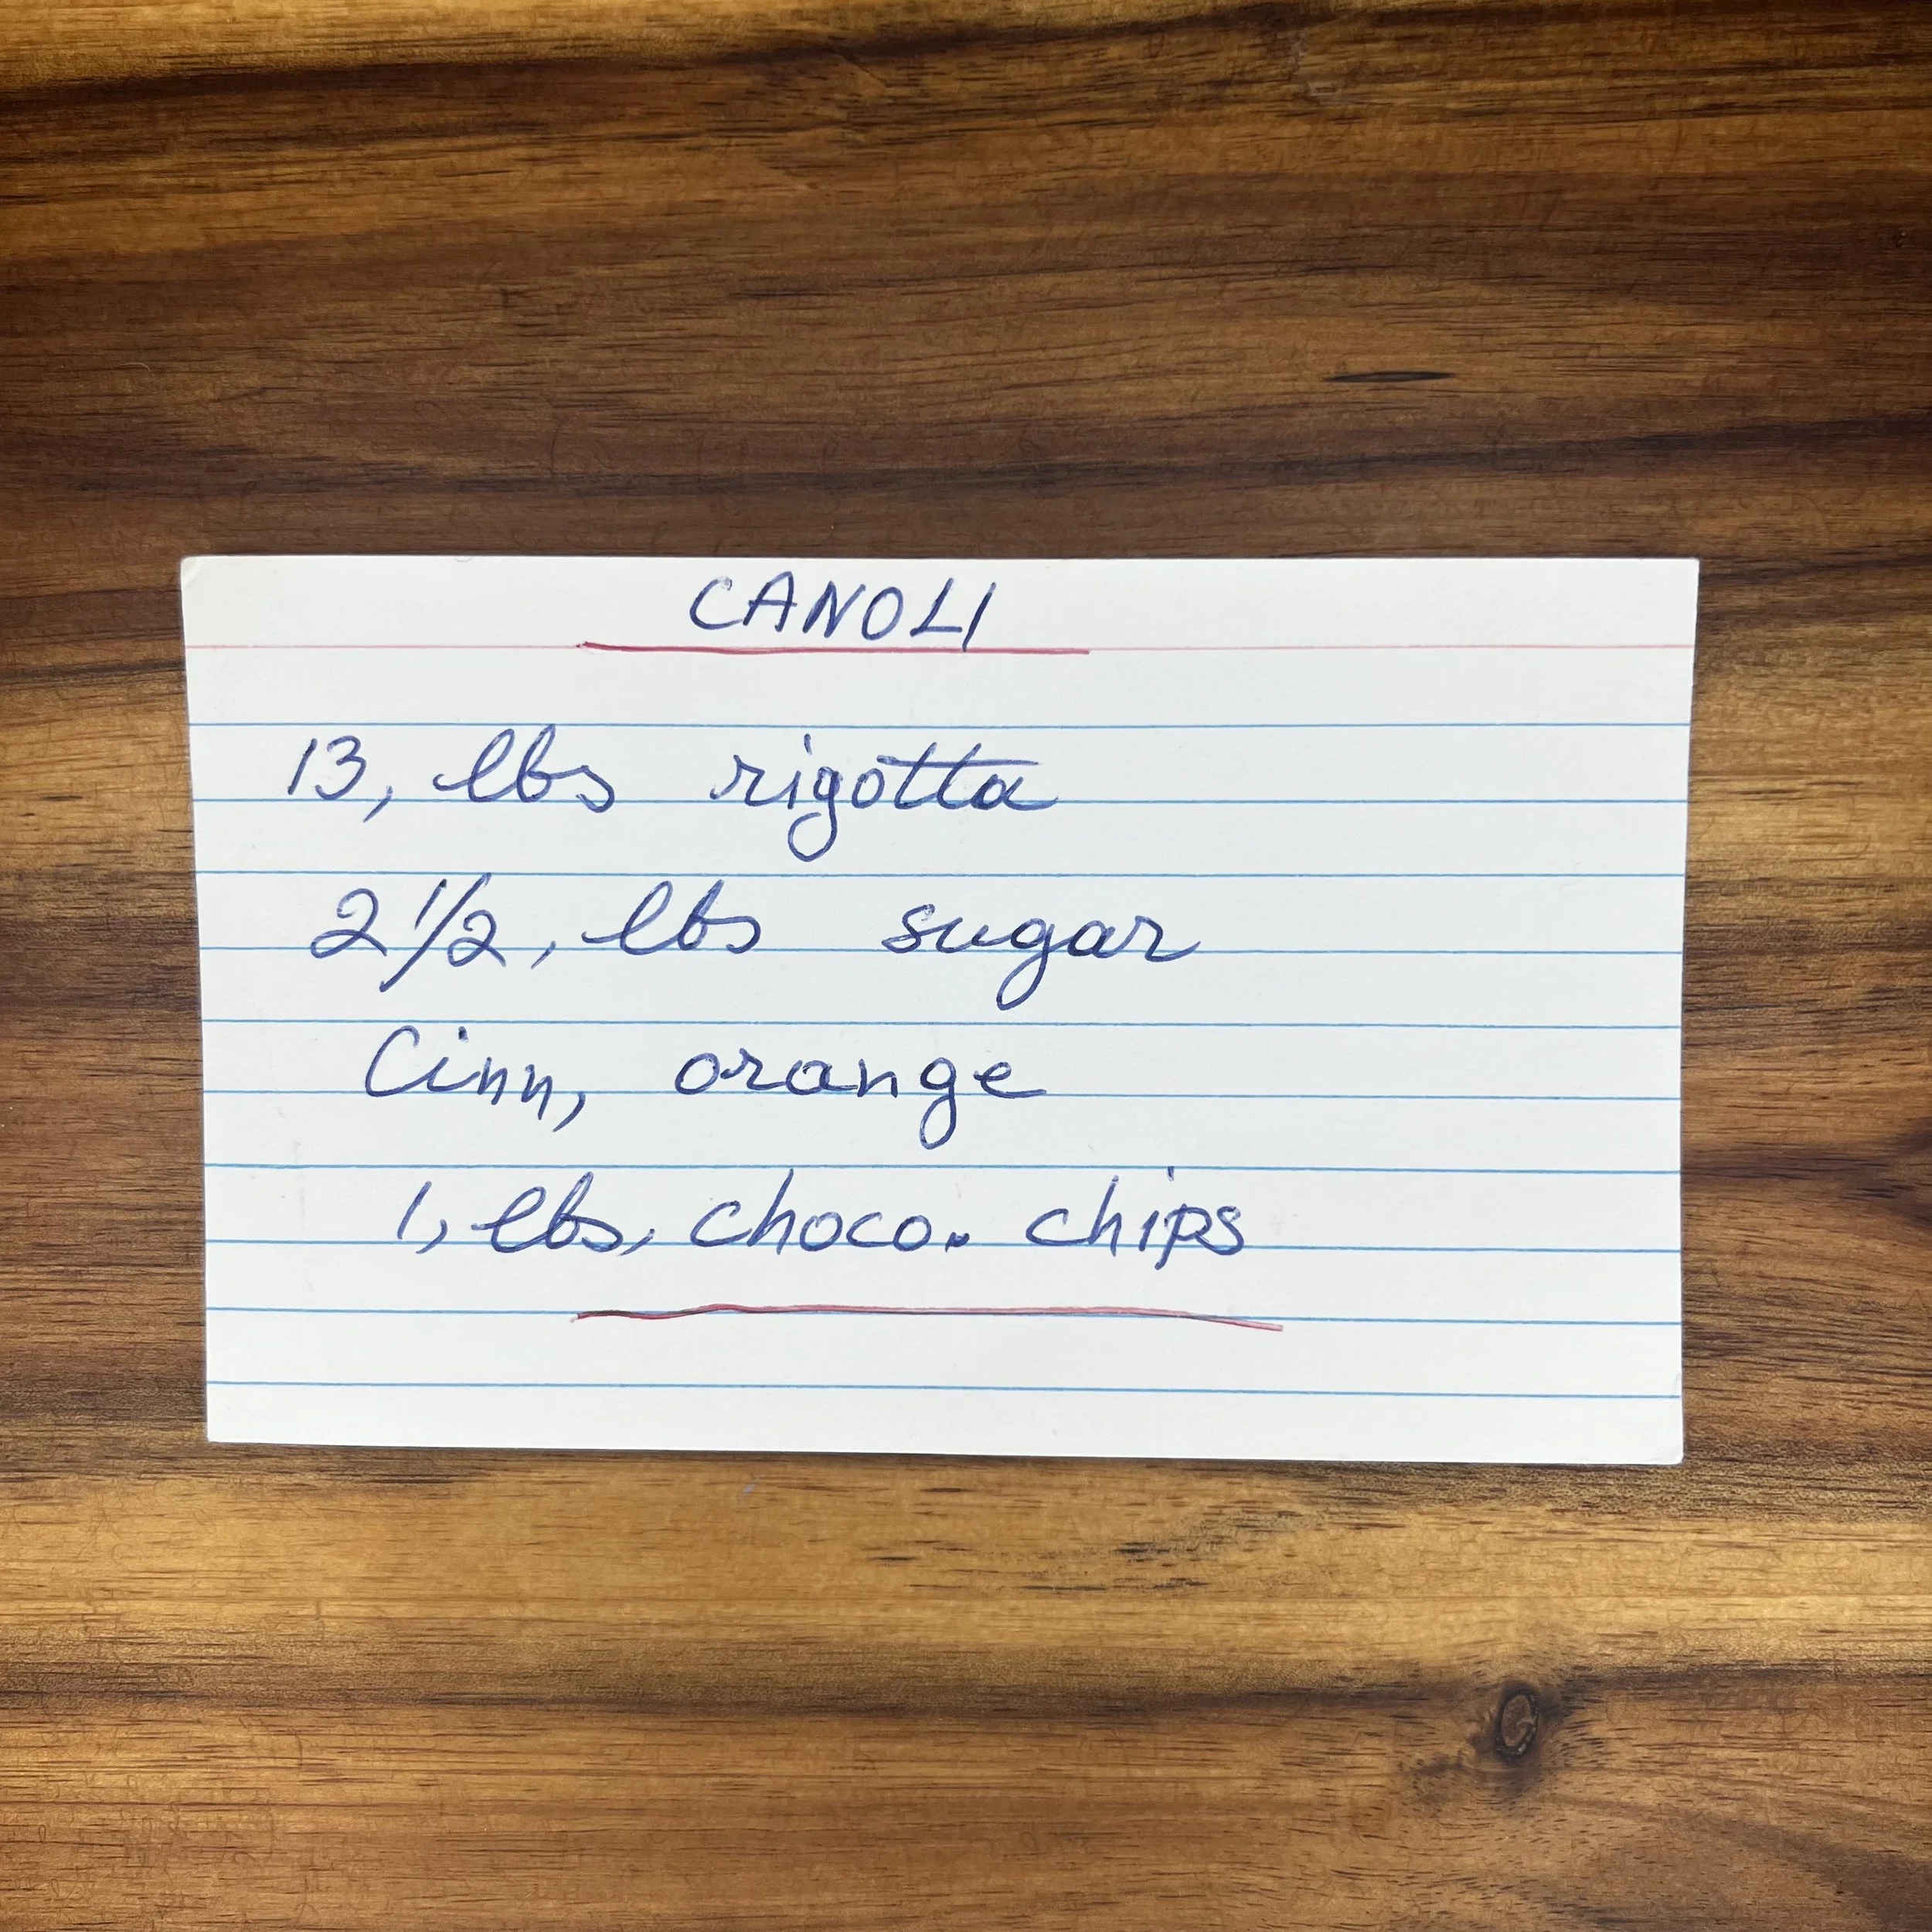 CANOLI
13, lbs rigotta
2 1/2, lbs sugar
Cinn, orange
1, lbs, choco. chips